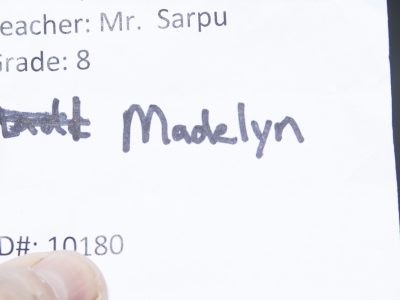 eacher: Mr. Sarpu
Grade: 8
Madelyn
D#: 10180